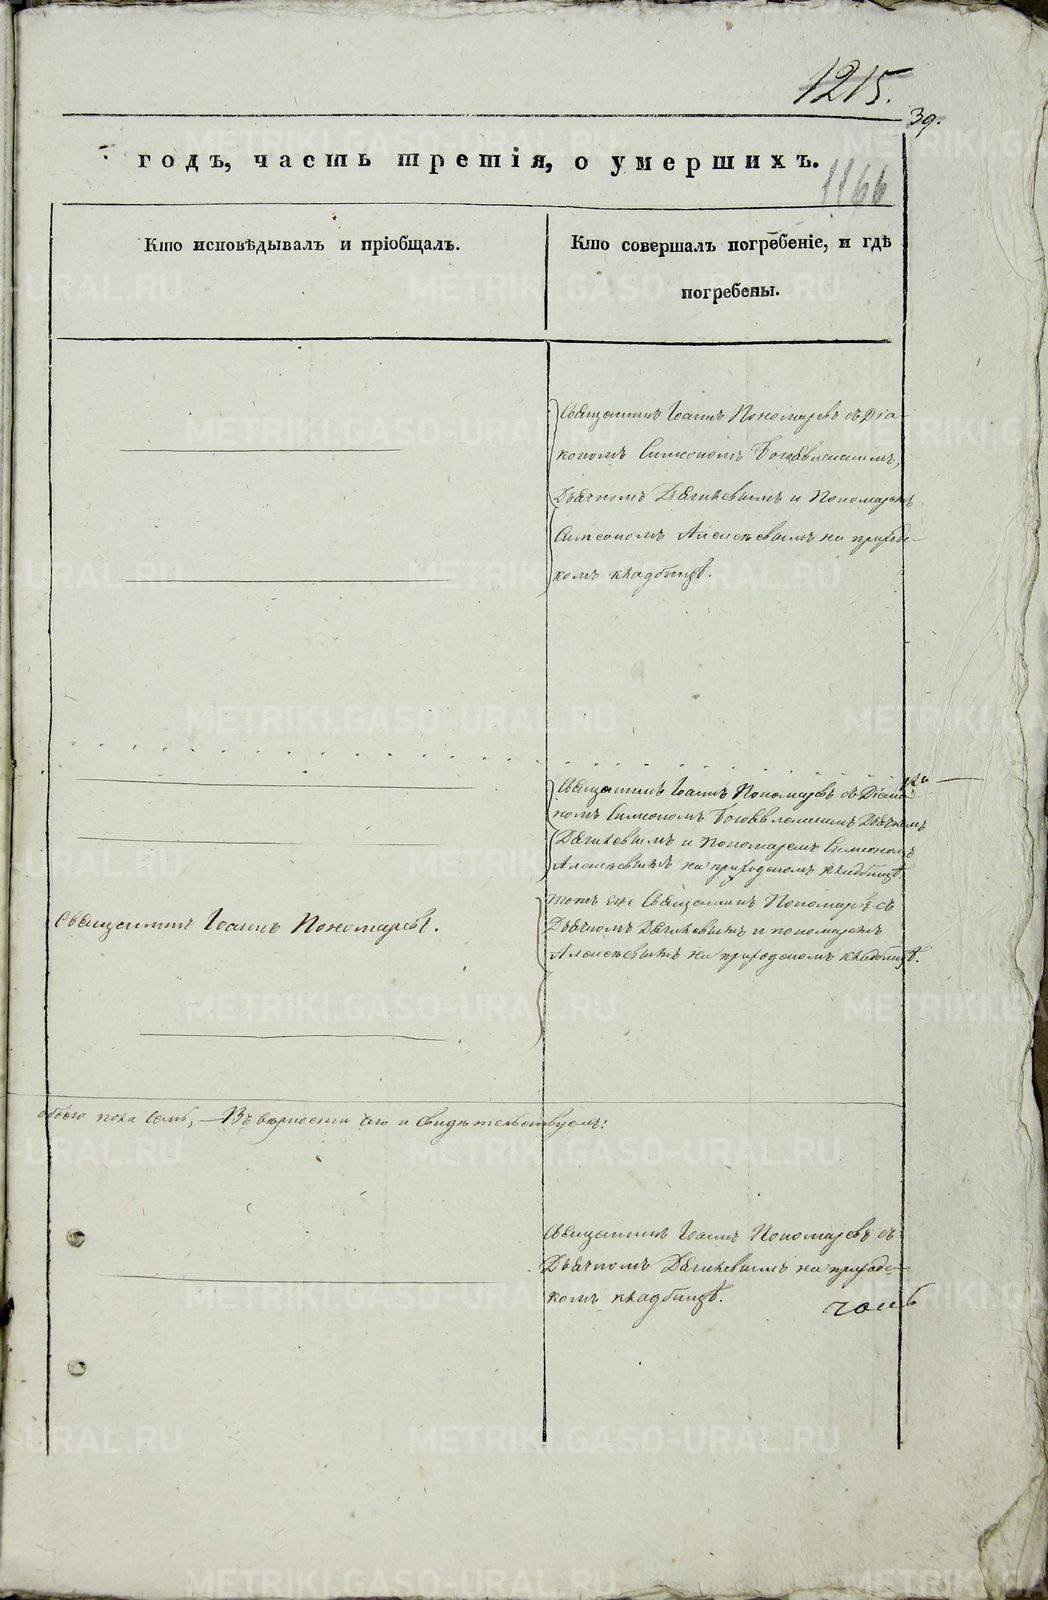 1215.
39.
годъ, часть третія, о умершихъ.
1166
Кто исповѣдывалъ и пріобщалъ.
Кто совершалъ погребеніе, и гдѣ
погребены.
Священникъ Іоаннъ Пономаревъ съ Діа-
кономъ Симеономъ Богоявленскимъ,
Дьячкомъ Дягилевымъ и Пономаремъ
Симеономъ Алексѣевымъ на приход-
комъ кладбищѣ.
Священникъ Іоаннъ Пономаревъ съ Діако-
номъ Симеономъ Богоявленскимъ Дьячкомъ
Дягилевымъ и Пономаремъ Симеономъ
Алексѣевымъ на приходскомъ кладбищѣ.
Священникъ Іоаннъ Пономаревъ.
тотъ же Священникъ Пономаревъ съ
Дьячкомъ Дягилевымъ и пономаремъ
Алексѣевымъ на приходскомъ кладбищѣ.
обоего пола семь, — Въ вѣрности сего и свидѣтельствуемъ:
Священникъ Іоаннъ Пономаревъ съ
Дьячкомъ Дягилевымъ на приход-
комъ кладбищѣ.
METRIKI.GASO-URAL.RU